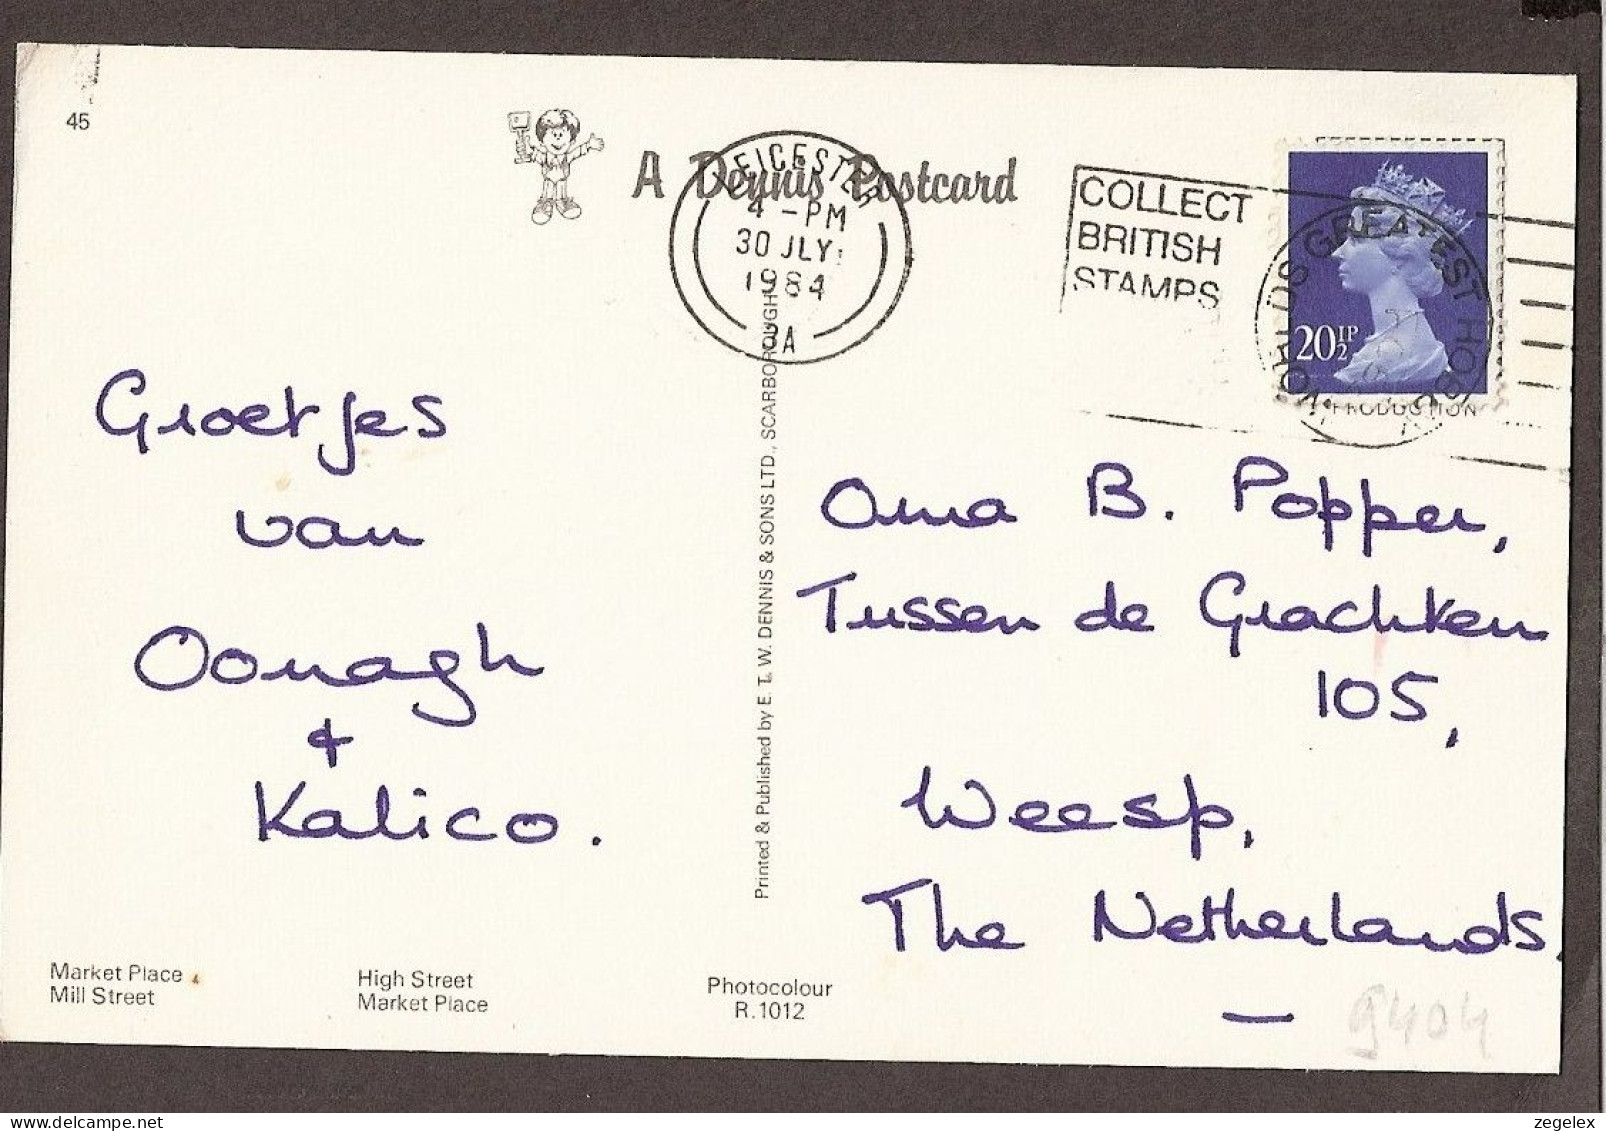 45
A Dennis Postcard
LEICESTER
4 - PM
30 JLY
1984
3A
COLLECT
BRITISH
STAMPS
WORLDS GREATEST HOBBY
20½P
Groetjes
van
Oonagh
&
Kalico.
Oma B. Popper,
Tussen de Grachten
105,
Weesp,
The Netherlands.
Printed & Published by E. T. W. DENNIS & SONS LTD., SCARBOROUGH
Market Place
Mill Street
High Street
Market Place
Photocolour
R.1012
9404
zegelex